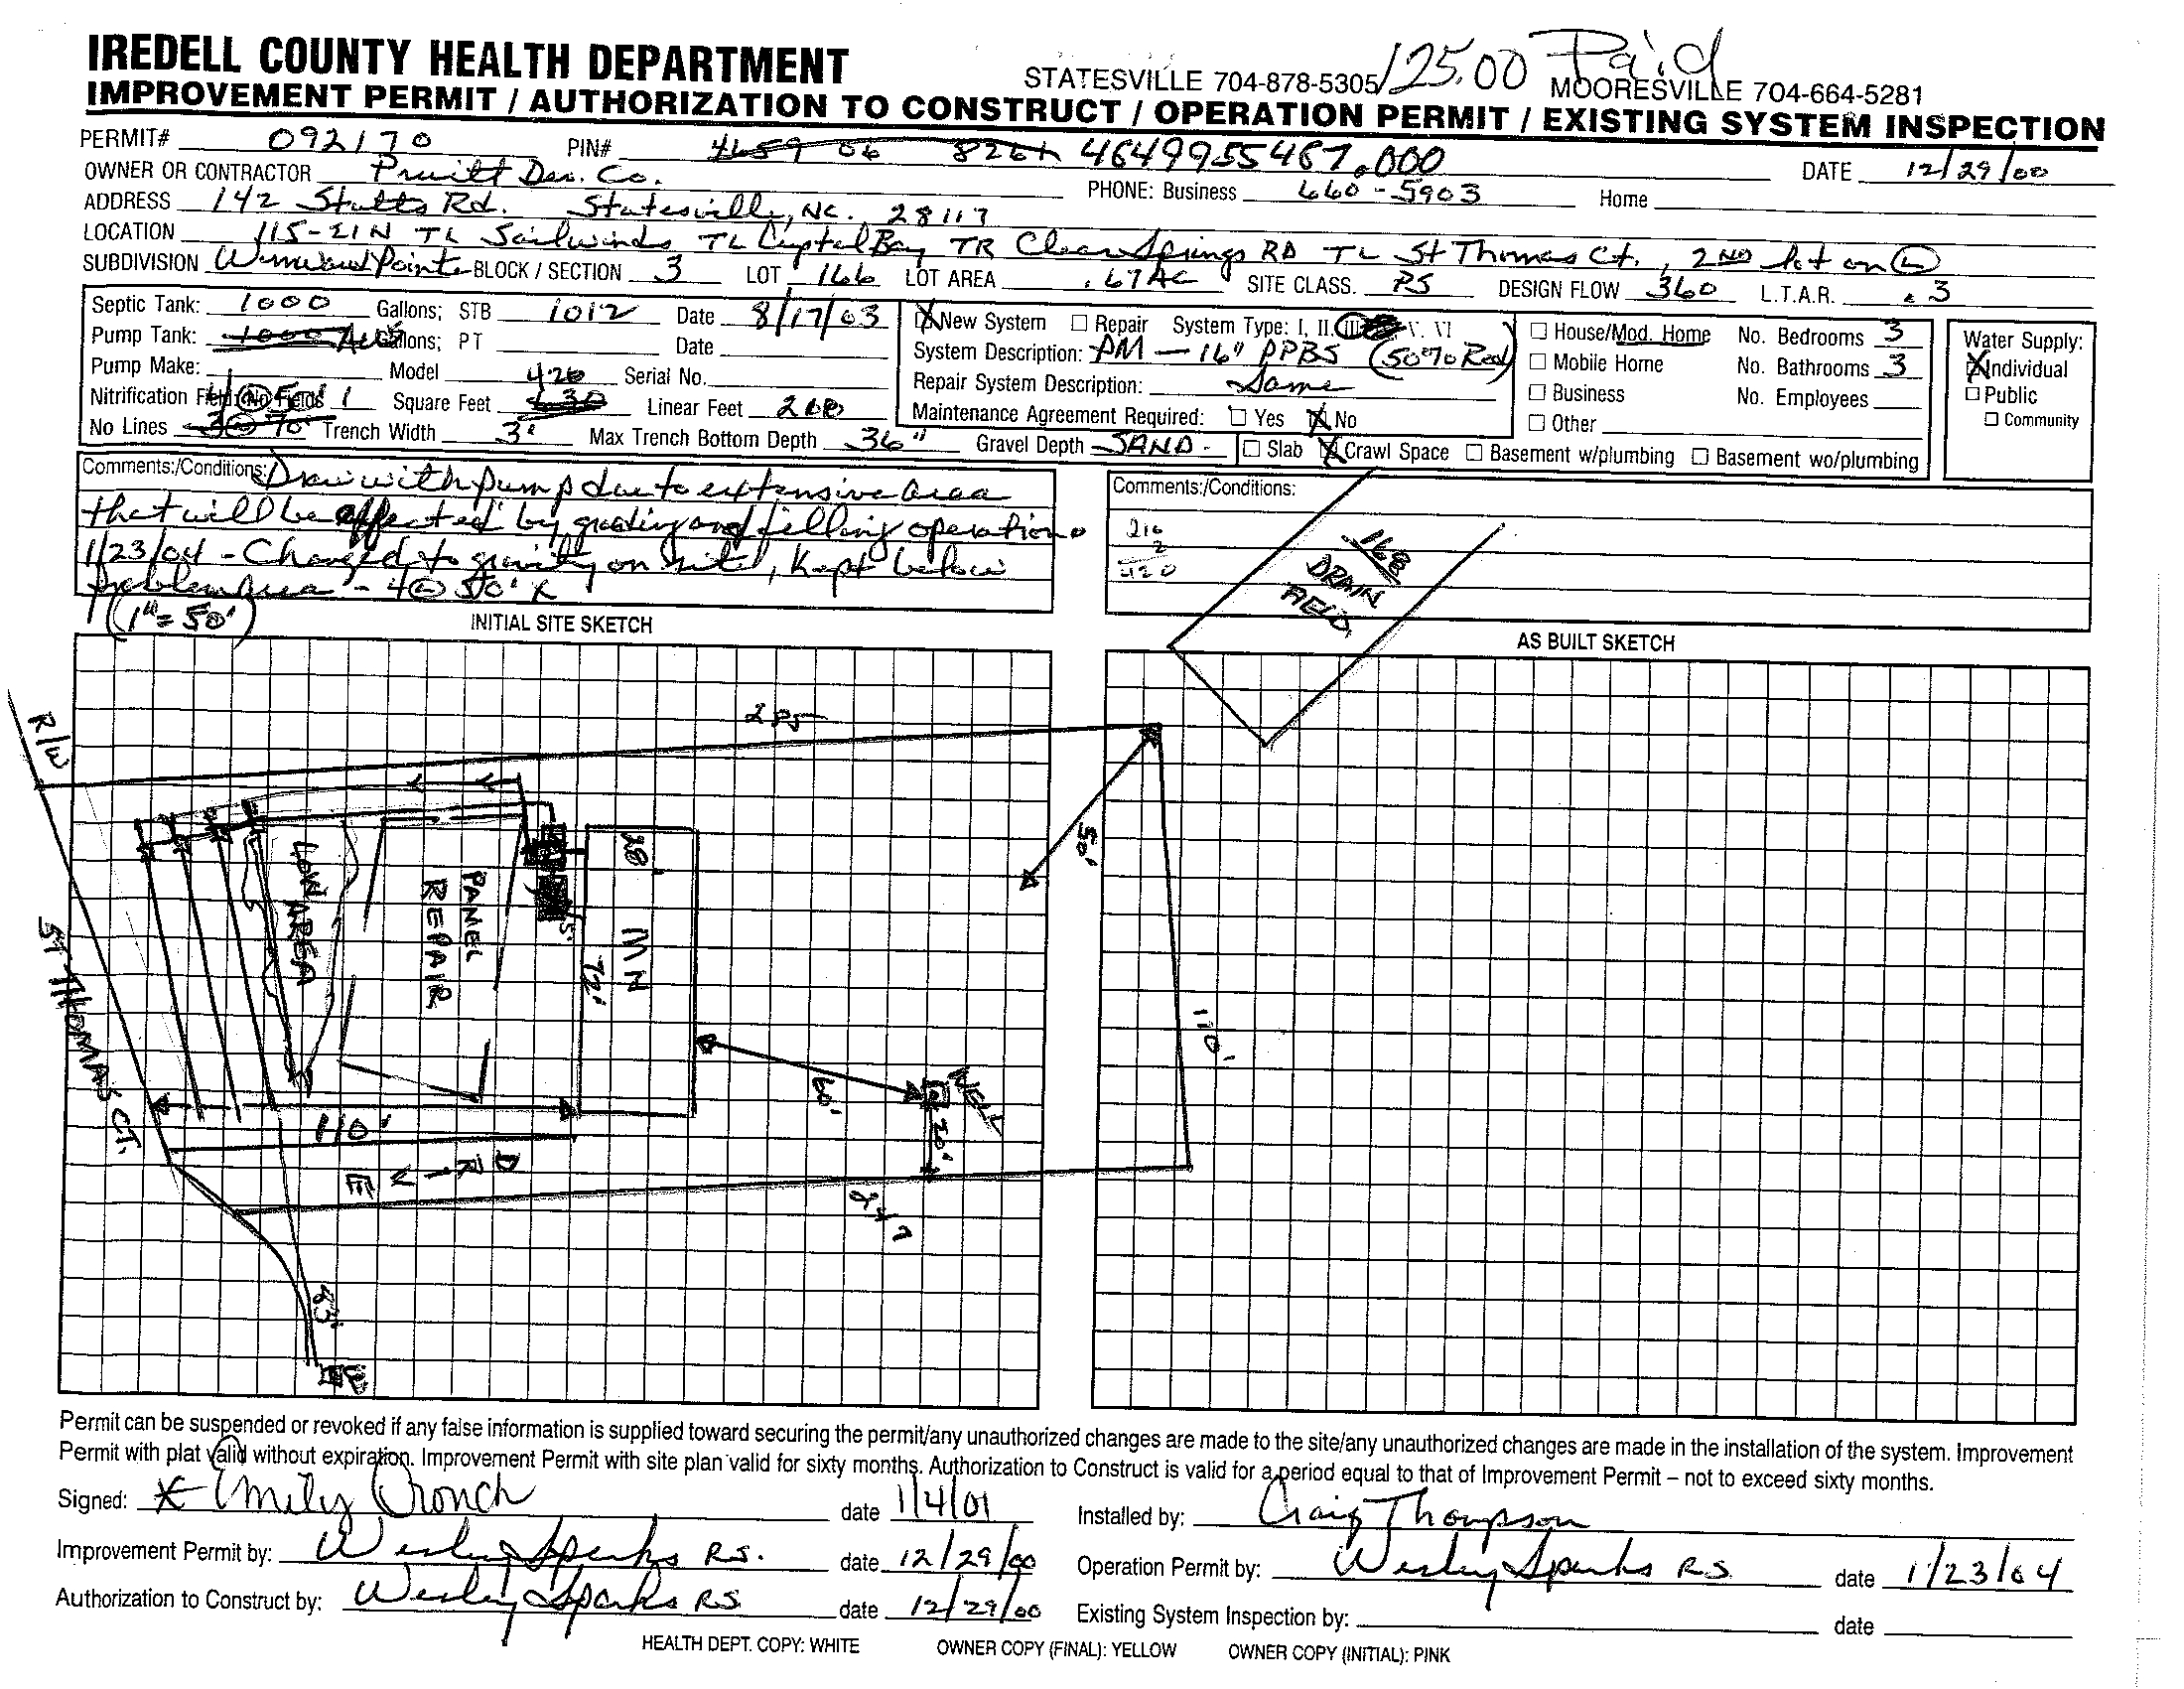 IREDELL COUNTY HEALTH DEPARTMENT
STATESVILLE 704-878-5305 125.00 Paid MOORESVILLE 704-664-5281
IMPROVEMENT PERMIT / AUTHORIZATION TO CONSTRUCT / OPERATION PERMIT / EXISTING SYSTEM INSPECTION
PERMIT# 092170 PIN# 4649955467.000 DATE 12/29/00
OWNER OR CONTRACTOR Pruitt Dev. Co. PHONE: Business 660-5903 Home
ADDRESS 142 Stutts Rd. Statesville, NC. 28117
LOCATION 115-21N TL Sailwinds TL Crystal Bay TR Clear Springs RD TL St Thomas Ct., 2ND lot on L
SUBDIVISION Winward Pointe BLOCK / SECTION 3 LOT 166 LOT AREA .67AC SITE CLASS. PS DESIGN FLOW 360 L.T.A.R. .3
Septic Tank: 1000 Gallons; STB 1012 Date 8/17/03
Pump Tank: 1000 Gallons; PT Date
Pump Make: Model 426 Serial No.
Nitrification Field: No Fields 1 Square Feet 630 Linear Feet 200
No Lines 3@70' Trench Width 3' Max Trench Bottom Depth 36" Gravel Depth SAND -
X New System Repair System Type: I, II, III, V. VI
System Description: PM - 16" PPBS (50% Red)
Repair System Description: Same
Maintenance Agreement Required: Yes X No
Slab X Crawl Space Basement w/plumbing Basement wo/plumbing
House/Mod. Home No. Bedrooms 3
Mobile Home No. Bathrooms 3
Business No. Employees
Other
Water Supply:
X Individual
Public
Community
Comments:/Conditions: Drew with pump due to extensive area
that will be affected by grading and filling operations
1/23/04 - Changed to gravity on site, Kept below
problem area - 4@50'
Comments:/Conditions:
216
2
168
DRAIN
FIELD
(1"=50')
INITIAL SITE SKETCH
AS BUILT SKETCH
R/W
285
50'
28'
LOW AREA
PANEL
REPAIR
15'
72'
MN
110'
ST THOMAS CT.
60'
WELL
20'
110'
DRIVE
247
83'
Permit can be suspended or revoked if any false information is supplied toward securing the permit/any unauthorized changes are made to the site/any unauthorized changes are made in the installation of the system. Improvement
Permit with plat valid without expiration. Improvement Permit with site plan valid for sixty months. Authorization to Construct is valid for a period equal to that of Improvement Permit – not to exceed sixty months.
Signed: Emily Cronch date 1/4/01 Installed by: Craig Thompson
Improvement Permit by: Wesley Sparks R.S. date 12/29/00 Operation Permit by: Wesley Sparks R.S. date 1/23/04
Authorization to Construct by: Wesley Sparks R.S. date 12/29/00 Existing System Inspection by: date
HEALTH DEPT. COPY: WHITE OWNER COPY (FINAL): YELLOW OWNER COPY (INITIAL): PINK